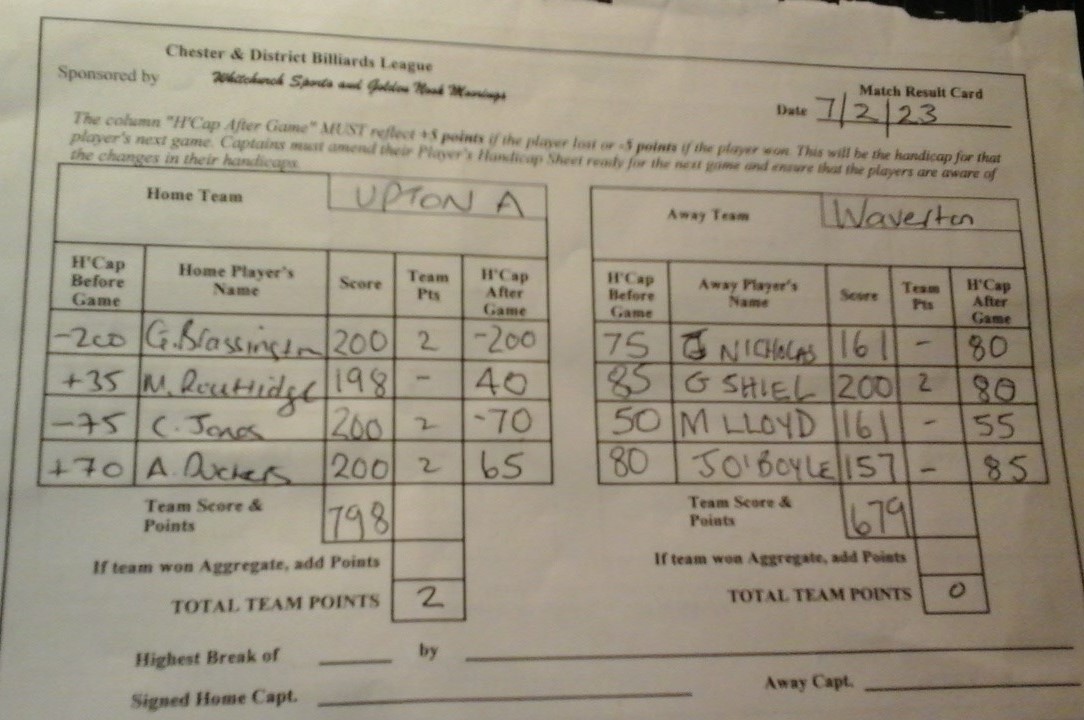 Chester & District Billiards League
Sponsored by Whitchurch Sports and Golden Nook Moorings
Match Result Card
Date 7/2/23
The column "H'Cap After Game" MUST reflect +5 points if the player lost or -5 points if the player won. This will be the handicap for that
player's next game. Captains must amend their Player's Handicap Sheet ready for the next game and ensure that the players are aware of
the changes in their handicaps.
Home Team UPTON A
Away Team Waverton
H'Cap Before Game Home Player's Name Score Team Pts H'Cap After Game
-200 G.Brassington 200 2 -200
+35 M. Routlidge 198 - 40
-75 C. Jones 200 2 -70
+70 A. Duckers 200 2 65
Team Score & Points 798
If team won Aggregate, add Points
TOTAL TEAM POINTS 2
H'Cap Before Game Away Player's Name Score Team Pts H'Cap After Game
75 J NICHOLAS 161 - 80
85 G SHIEL 200 2 80
50 M LLOYD 161 - 55
80 J O'BOYLE 157 - 85
Team Score & Points 679
If team won Aggregate, add Points
TOTAL TEAM POINTS 0
Highest Break of by
Signed Home Capt. Away Capt.